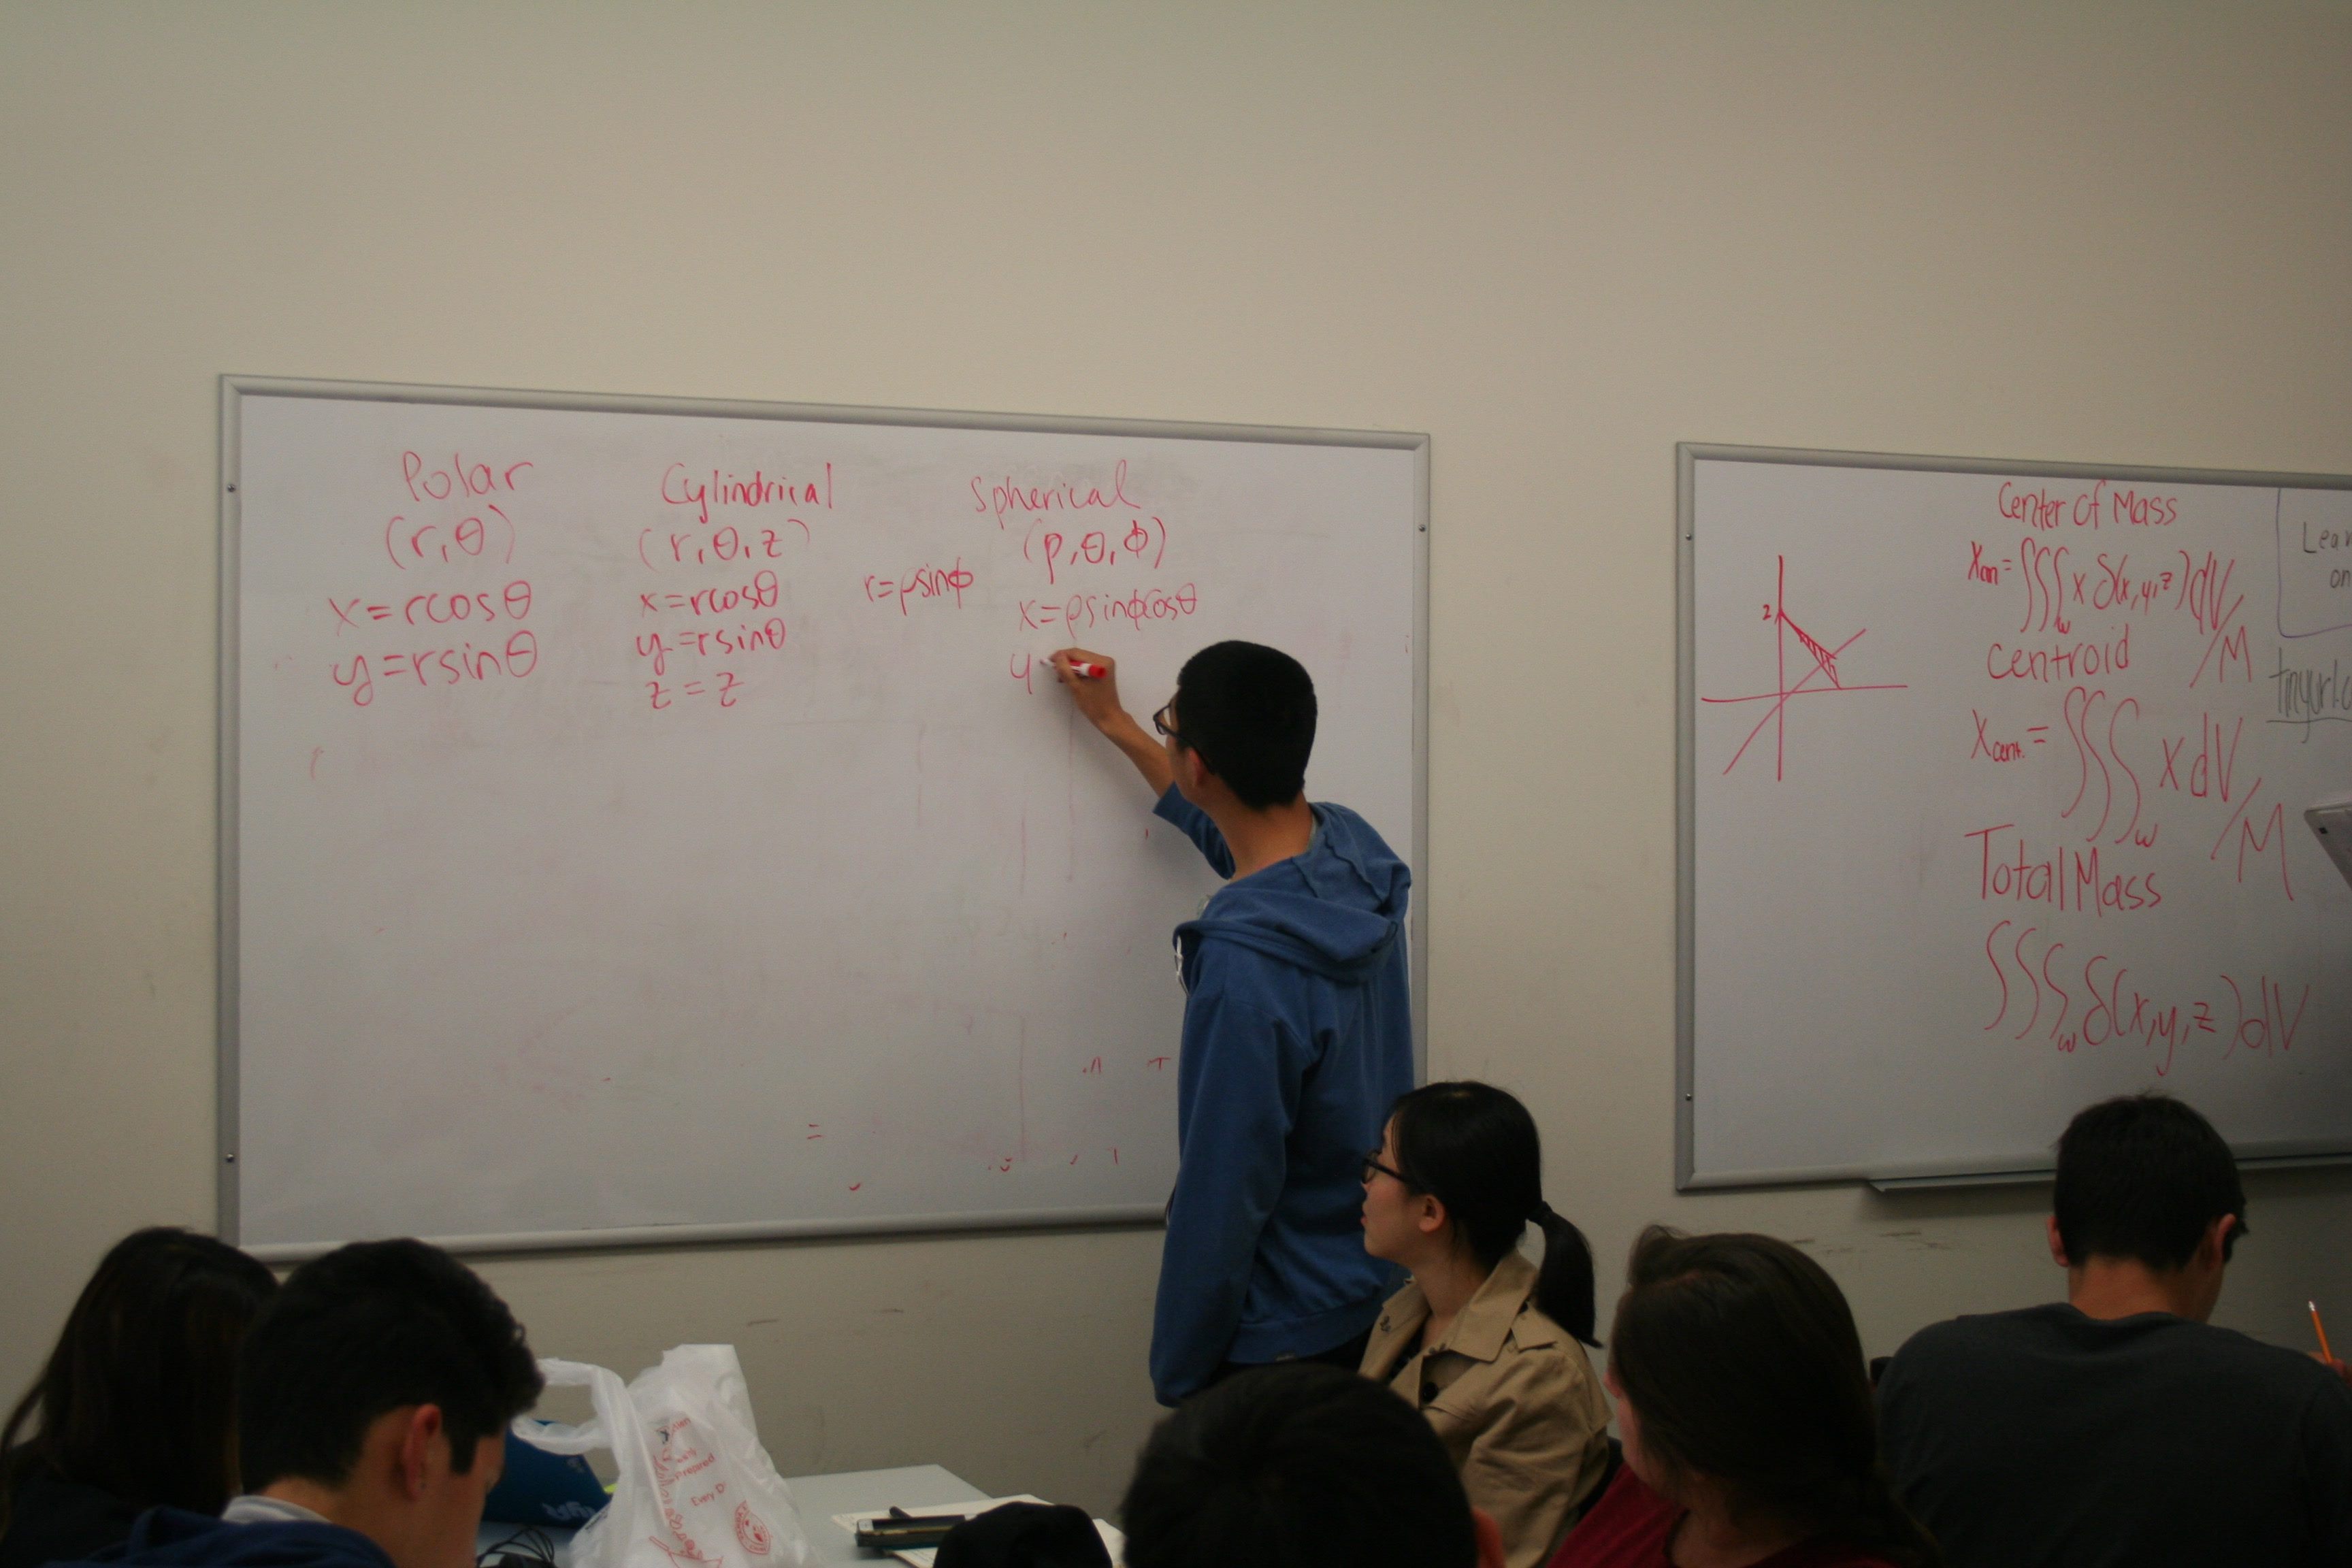 Polar
(r, θ)
x = rcosθ
y = rsinθ
Cylindrical
(r, θ, z)
x = rcosθ
y = rsinθ
z = z
r = ρsinϕ
Spherical
(ρ, θ, ϕ)
x = ρsinϕcosθ
y
2
Center of Mass
Xcm = ∭w x δ(x, y, z) dV / M
Centroid
Xcent. = ∭w x dV / M
Total Mass
∭w δ(x, y, z) dV
Lear
on
tinyurl.c
Prepared
Every D